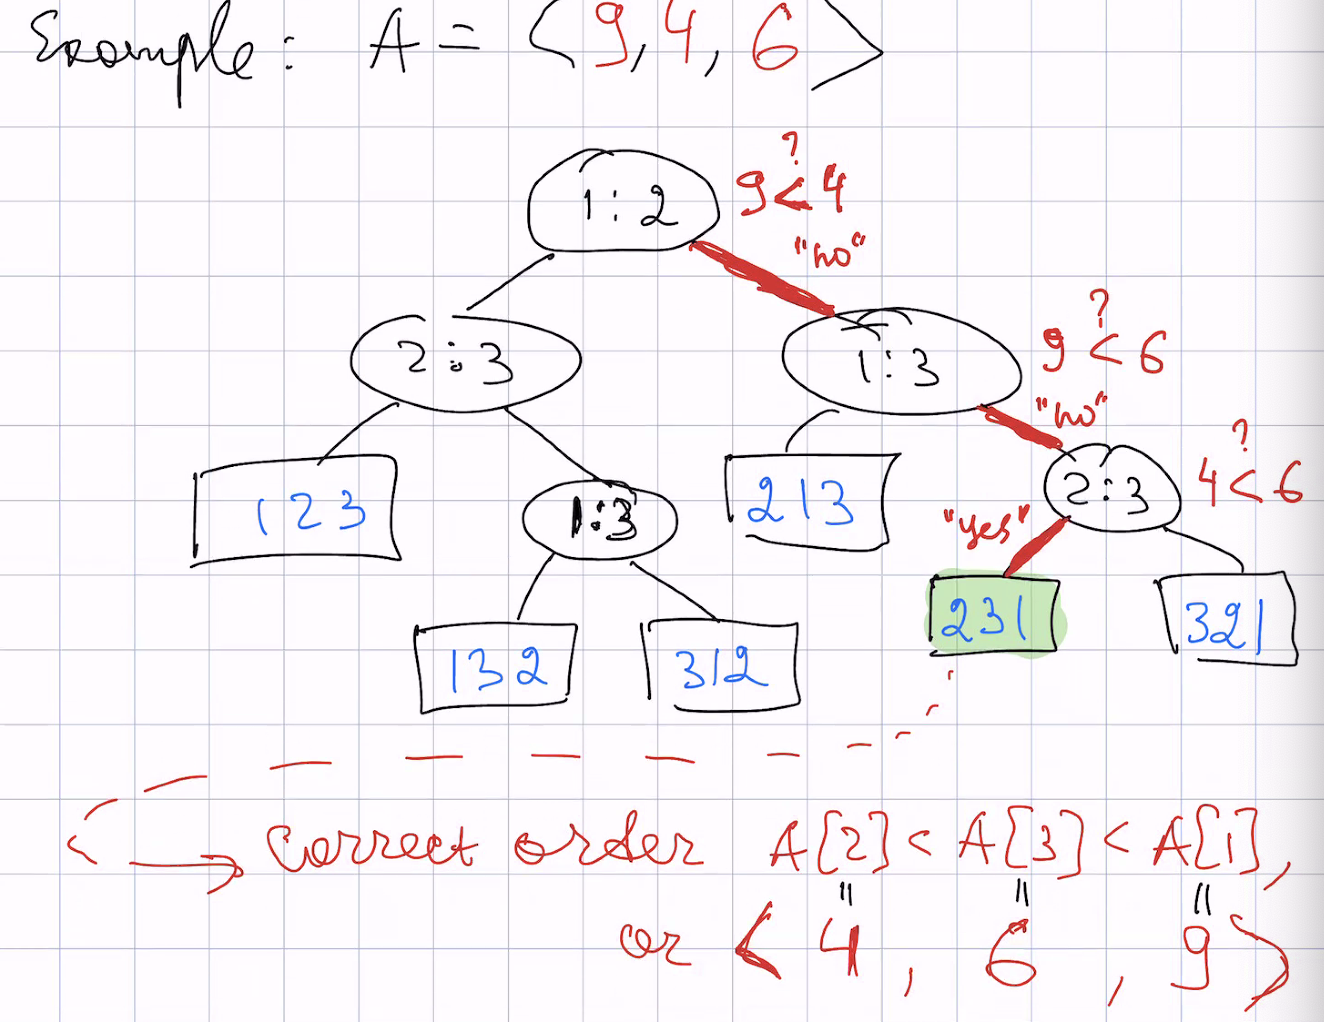 Example: A = < 9, 4, 6 >
1:2 9 <? 4
"no"
2:3 1:3 9 <? 6
"no"
1 2 3 1:3 2 1 3 2:3 4 <? 6
"yes"
1 3 2 3 1 2 2 3 1 3 2 1
→ Correct order A[2] < A[3] < A[1],
|| || ||
or < 4, 6, 9 >